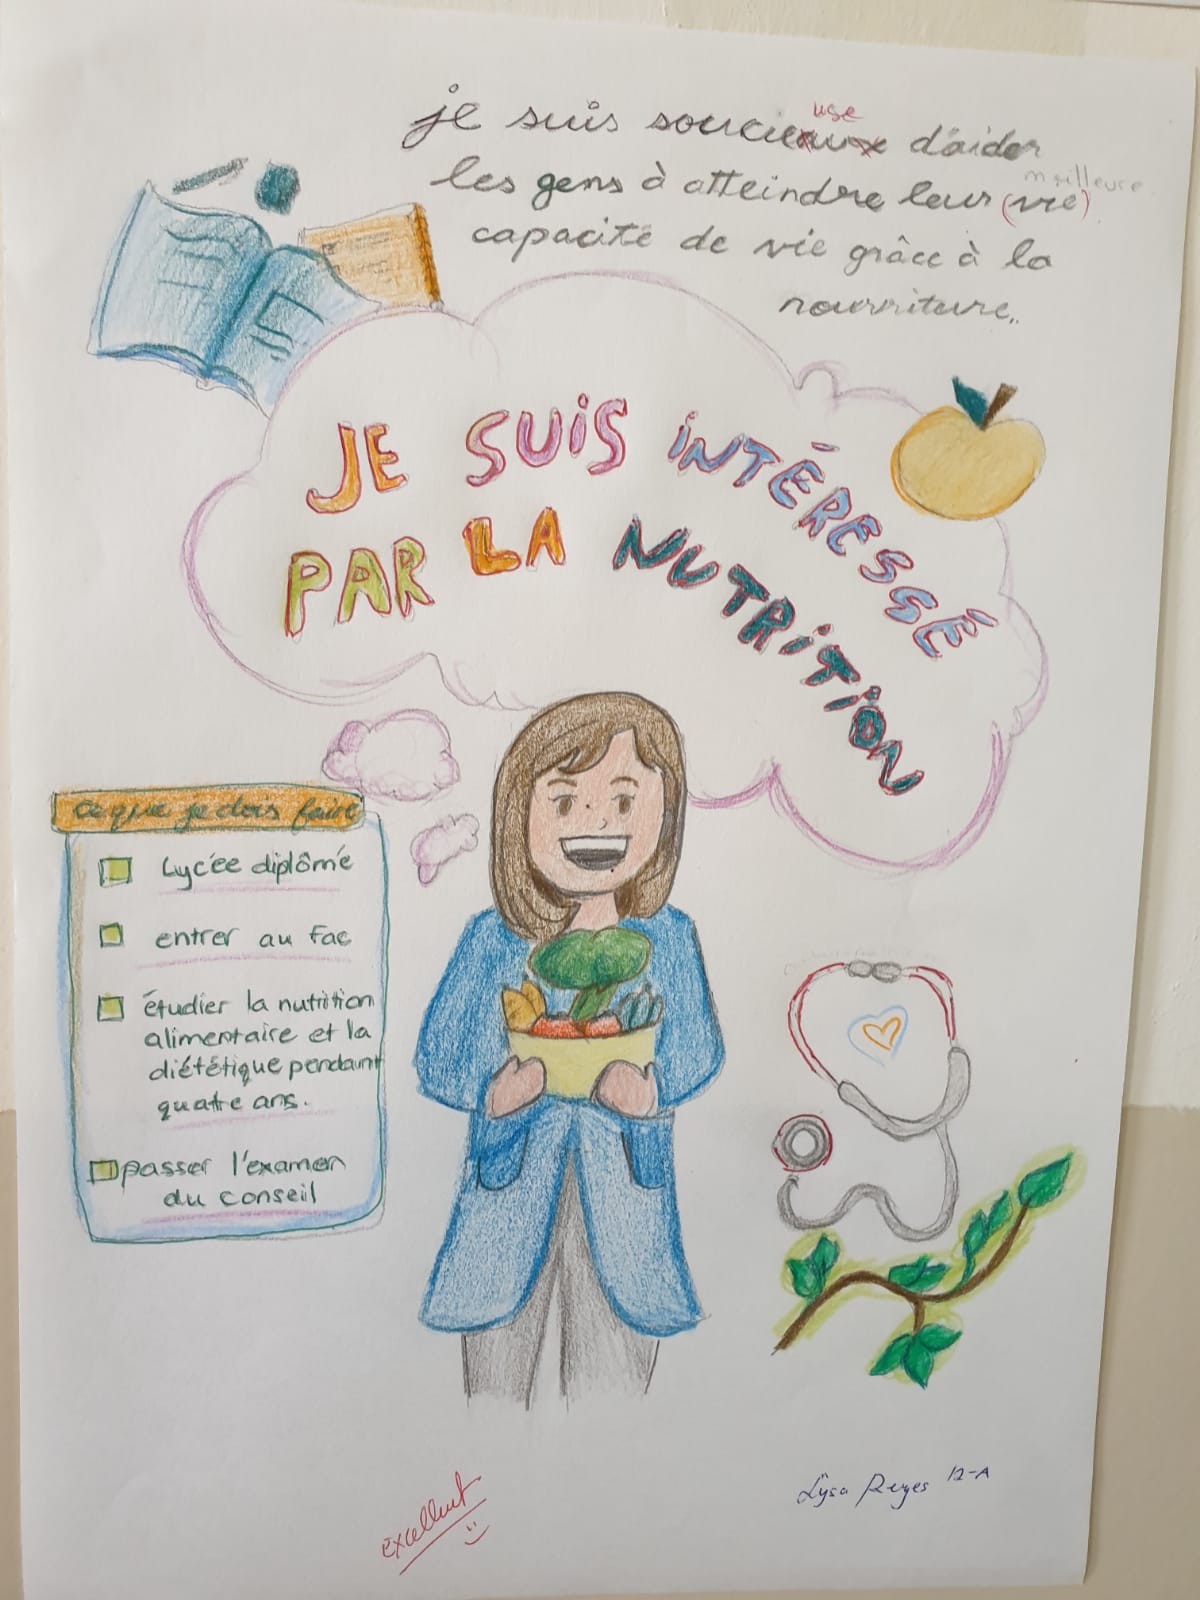 je suis soucieuxuse d'aider
les gens à atteindre leur (vie) meilleure
capacité de vie grâce à la
nourriture..
JE SUIS INTÉRESSÉ
PAR LA NUTRITION
ce que je dois faire
Lycée diplômé
entrer au Fac
étudier la nutrition
alimentaire et la
diététique pendant
quatre ans.
passer l'examen
du conseil
excellent
Lysa Reyes 12-A